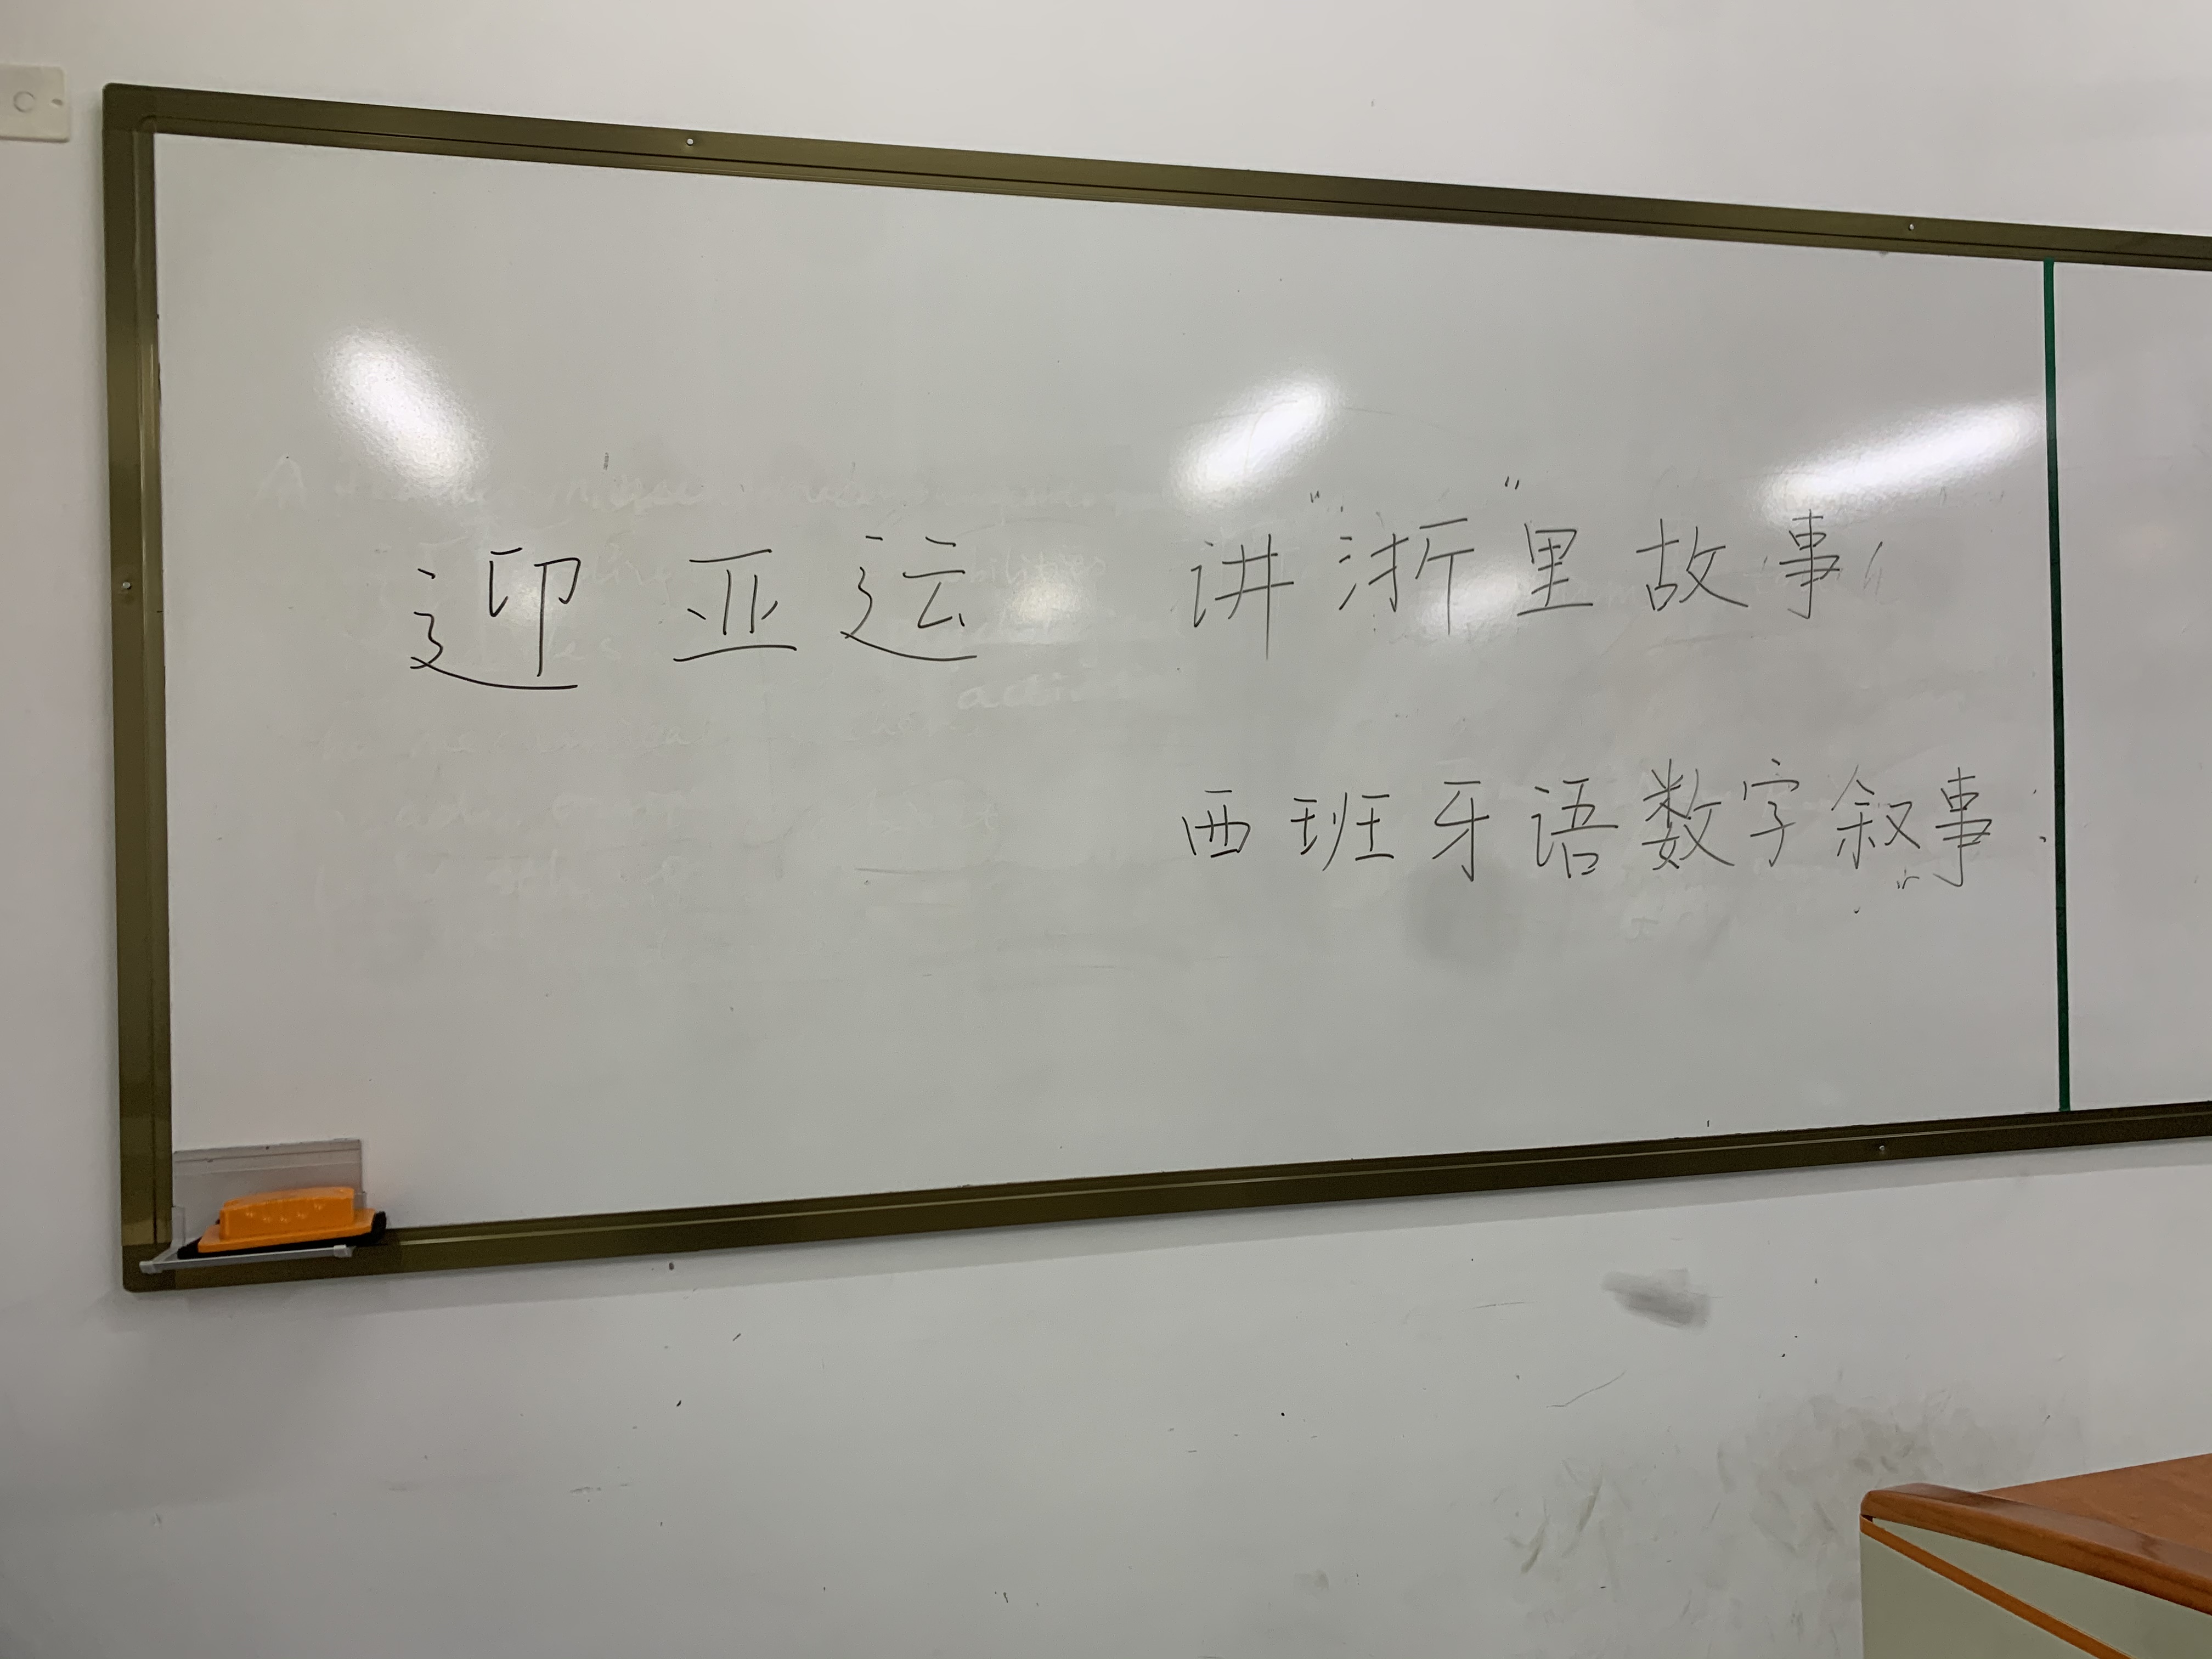 迎亚运 讲“浙”里故事
西班牙语数字叙事